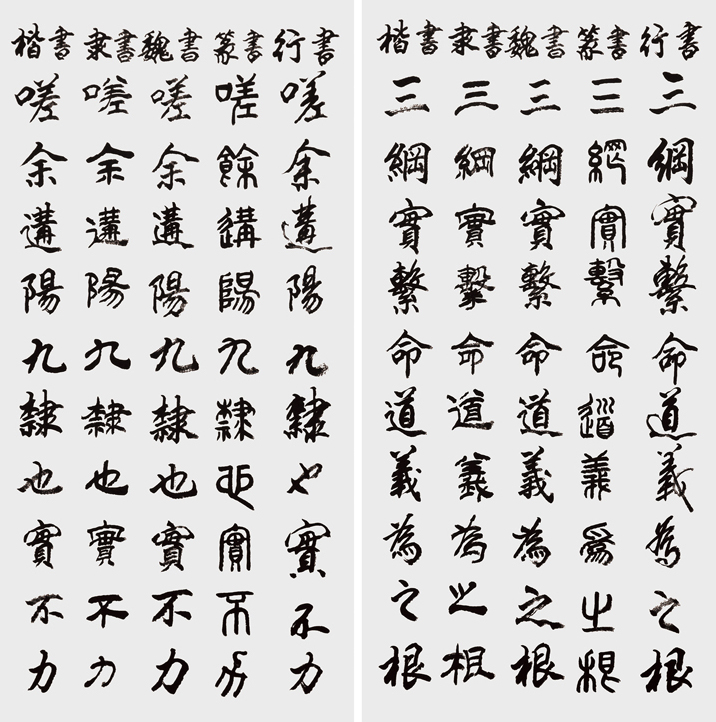 楷書
三綱實繫命道義為之根
隶書
三綱實繫命道義為之根
魏書
三綱實繫命道義為之根
篆書
三綱實繫命道義為之根
行書
三綱實繫命道義為之根
楷書
嗟余遘陽九隸也實不力
隶書
嗟余遘陽九隸也實不力
魏書
嗟余遘陽九隸也實不力
篆書
嗟餘遘陽九隸也實不力
行書
嗟余遘陽九隸也實不力